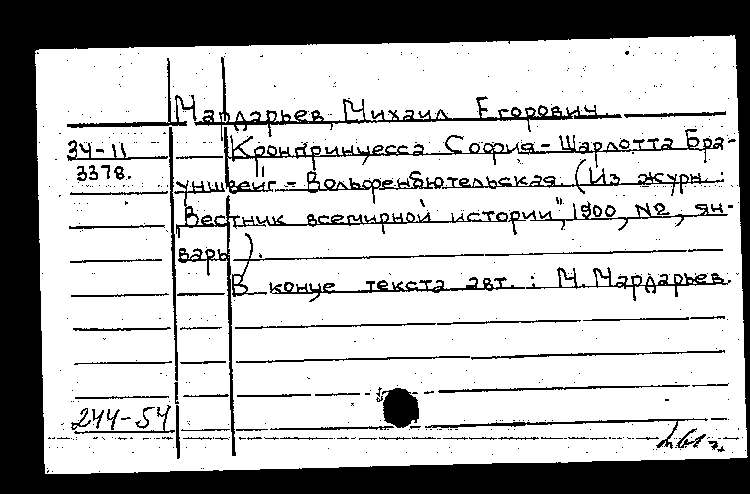 Мардарьев, Михаил Егорович
34-11
3378.
Кронпринцесса София-Шарлотта Бра-
уншвейг-Вольфенбютельская. (Из журн.:
"Вестник всемирной истории", 1900, №2, ян-
варь).
В конце текста авт.: М. Мардарьев.
244-54